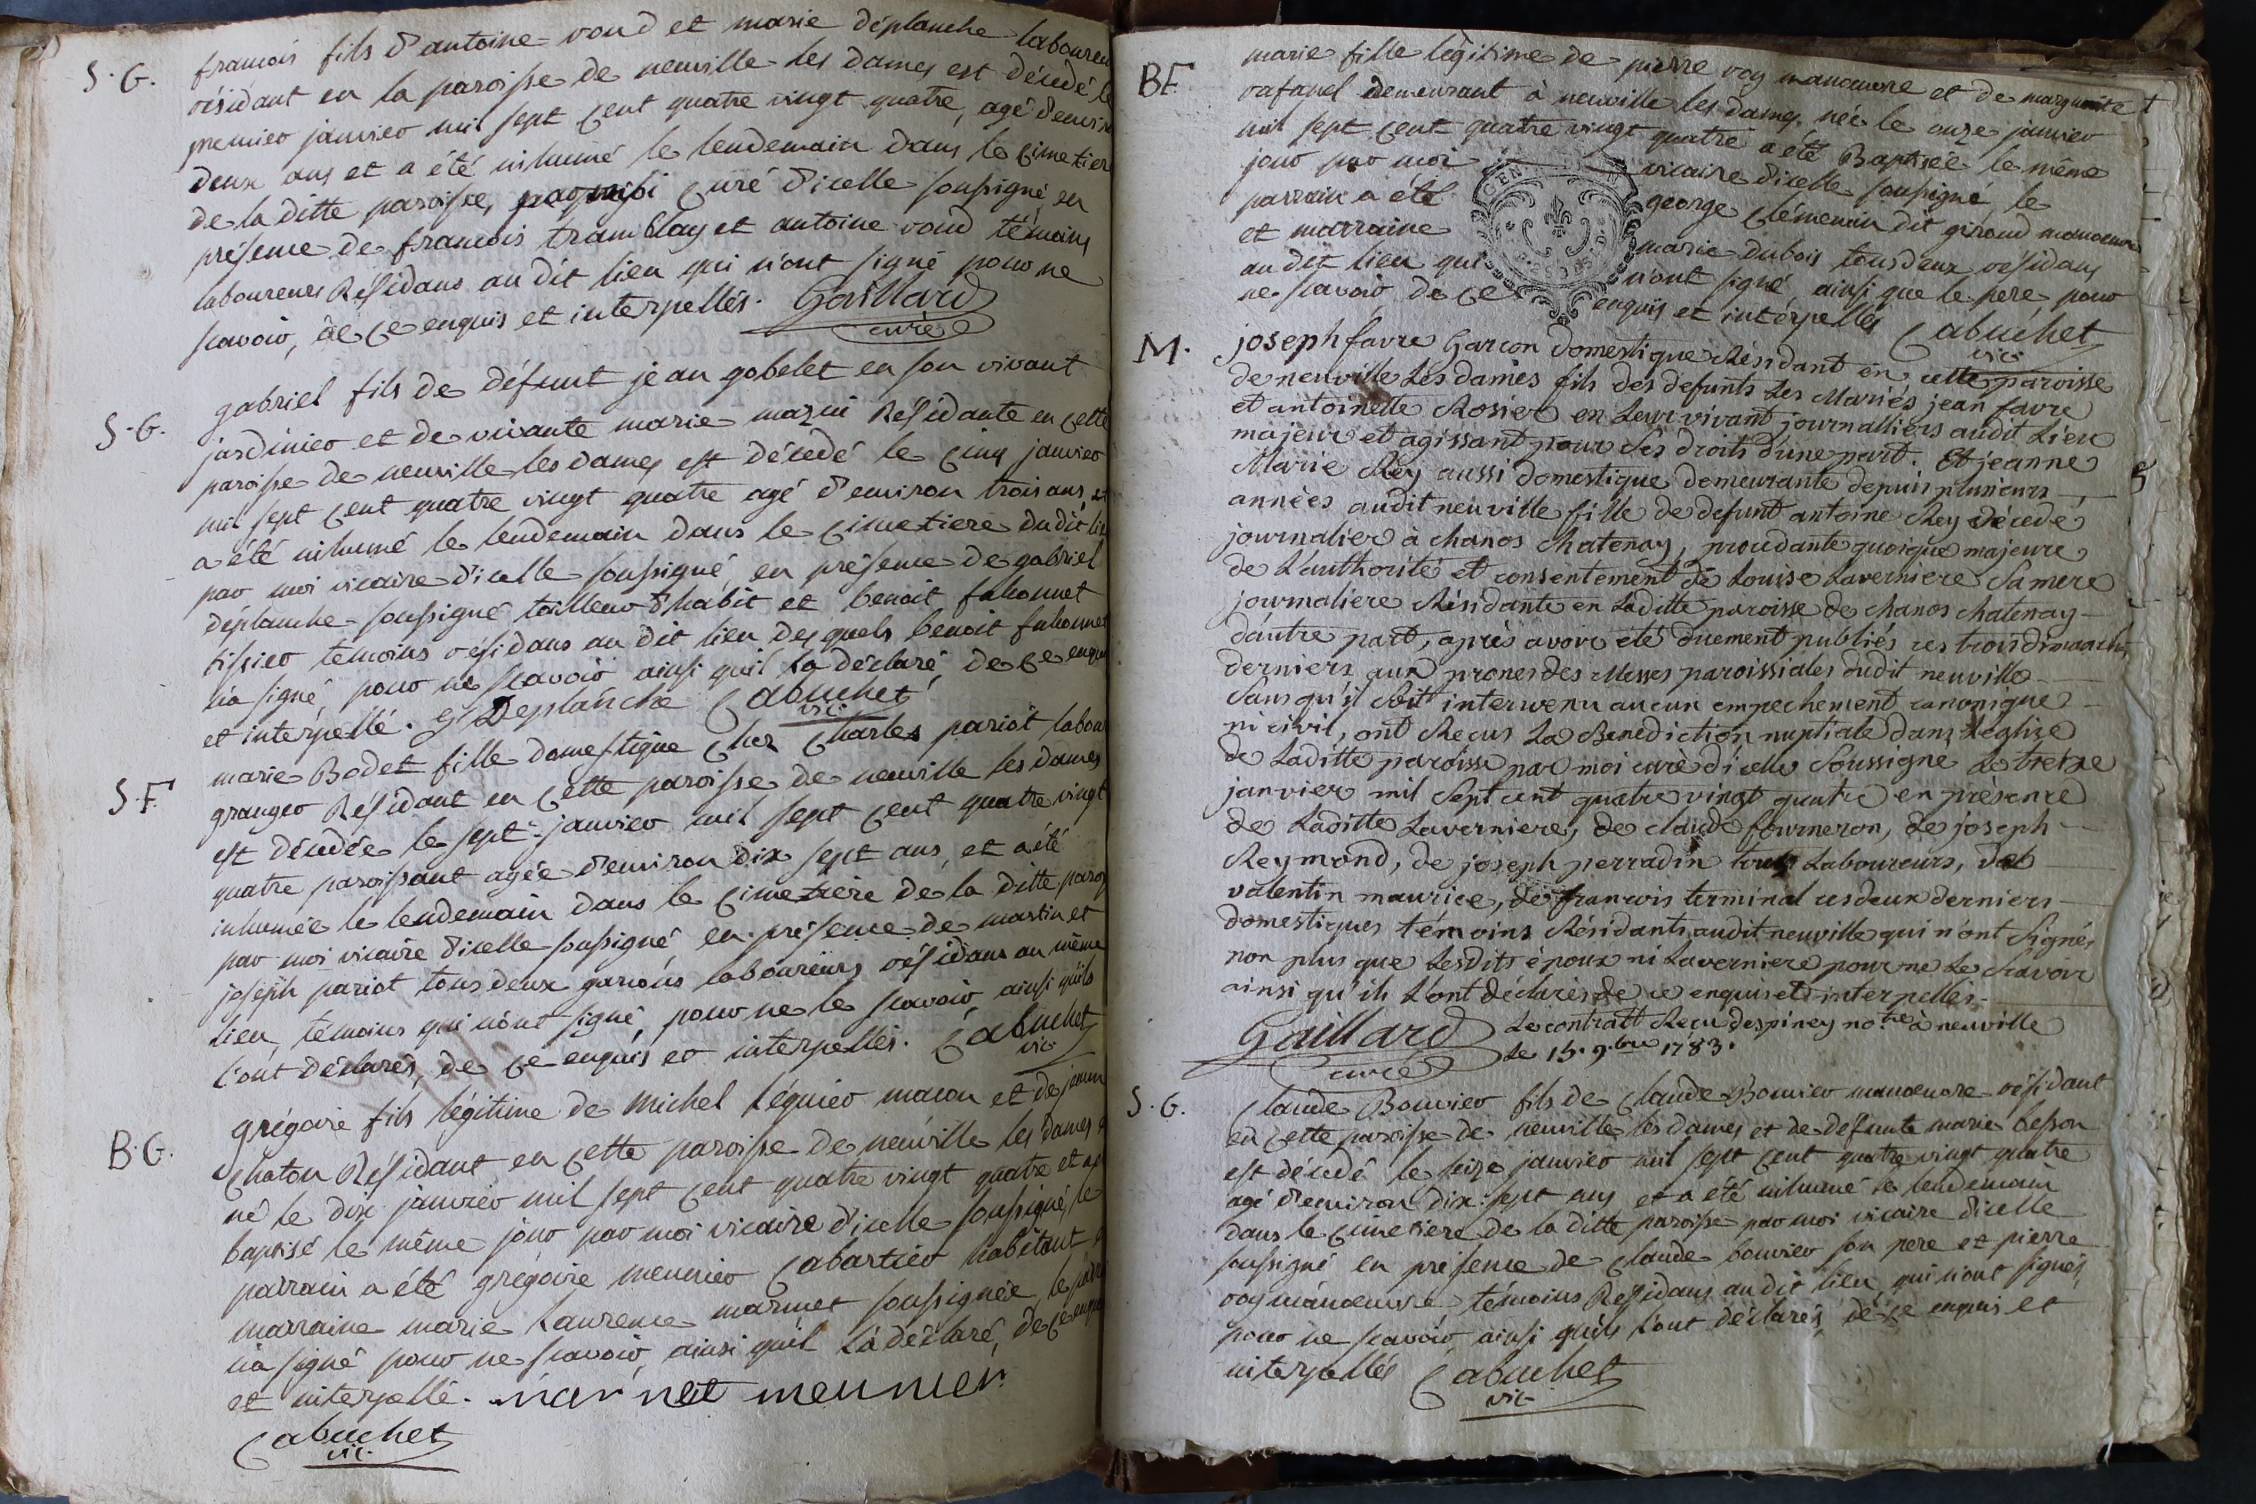 S. G.
francois fils d'antoine voud et marie déplanche laboureu
résidant en la paroisse de neuville les dames est décédé le
premier janvier mil sept cent quatre vingt quatre, agé denviro
deux ans et a été inhumé le lendemain dans le cimetier
de la ditte paroisse, par moi curé d'icelle soussigné, en
présence de francois tramblay et antoine voud témoins
laboureurs Résidans au dit lieu qui n'ont signé pour ne
scavoir, de ce enquis et interpellés. Gaillard
curé
S. G.
gabriel fils de défunt jean gobelet en son vivant
jardinier et de vivante marie mazui Résidante en cette
paroisse de neuville les dames est décédé le cinq janvier
mil sept cent quatre vingt quatre agé d'environ trois ans, et
a été inhumé le lendemain dans le cimetiere dudit lieu
par moi vicaire d'icelle soussigné, en présence de gabriel
déplanche soussigné tailleur d'habit et benoit fahonnet
tissier témoins résidans au dit lieu desquels benoit fahonnet
n'a signé, pour ne scavoir ainsi quil la déclaré, de ce enquis
et interpellé. g Deplanche Cabuchet
vic.
S. F.
marie Bodet fille domestique chez Charles pariot labour
granger Résidant en cette paroisse de neuville les dames
est décédée le sept janvier mil sept cent quatre vingt
quatre paroissant agée d'environ dix sept ans, et a été
inhumée le lendemain dans le cimetiere de la ditte parois
par moi vicaire d'icelle soussigné, en présence de martin et
joseph pariot tous deux garcons laboureurs résidans au même
lieu, témoins qui n'ont signé, pour ne le scavoir ainsi quils
l'ont déclarés, de ce enquis et interpellés. Cabuchet
vic.
B. G.
grégoire fils légitime de Michel Léguier macon et de jeann
Chaton Résidant en cette paroisse de neuville les dames
né le dix janvier mil sept cent quatre vingt quatre et a
baptisé le même jour par moi vicaire d'icelle soussigné, le
parrain a été grégoire meunier Cabartier habitant
marraine marie Laurence marinet soussignée, le
n'a signé pour ne scavoir, ainsi quil la déclaré, de ce enquis
et interpellé. marinet meunier
Cabuchet
vic.
B F
marie fille légitime de pierre roy manoeuvre et de marguerite
rafanel demeurant à neuville les dames, née le onze janvier
mil sept cent quatre vingt quatre a été Baptisée le même
jour par moi vicaire d'icelle soussigné, le
parrain a été george Clémencin dit giroud manoeuvre
et marraine marie dubois tous deux résidans
au dit lieu qui n'ont signé ainsi que le pere pour
ne scavoir de ce enquis et interpellés Cabuchet
vic.
M.
joseph favre Garcon domestique Résidant en cette paroisse
de neuville Les dames fils des defunts Les Mariés jean favre
et antoinette Rosier en Leur vivant journalliers audit Lieu
majeur et agissant pour Ses droits d'une part. Et jeanne
Marie Rey aussi domestique demeurante depuis plusieurs
années audit neuville fille de defunt antoine Rey décédé
journalier à chanos chatenay, procédante quoique majeure
de L'authorité et consentement de Louise Laverniere Sa mere
journaliere Résidante en Laditte paroisse de chanos chatenay
d'autre part, après avoir été duement publiés ces trois dimanches
derniers aux prones des Messes paroissiales dudit neuville
Sans qu'il Soit intervenu aucun empechement canonique
ni civil, ont Recus La Benediction nuptiale dans L'eglize
de Laditte paroisse par moi curé d'icelle Soussigné Le treize
janvier mil Sept cent quatre vingt quatre en présence
de Laditte Laverniere, de claude fourneron, de joseph
Reymond, de joseph perradin tous Laboureurs, de
valentin maurice, de francois terminal ces deux derniers
domestiques témoins Résidants audit neuville qui n'ont Signés
non plus que Lesdits époux ni Laverniere pour ne Le Scavoir
ainsi qu'ils L'ont déclarés de ce enquis et interpellés.
Gaillard Le contratt Recu despiney no.re à neuville
curé Le 15. 9.bre 1783.
S. G.
Claude Bouvier fils de Claude Bouvier manoeuvre résidant
en cette paroisse de neuville les dames et de defunte marie besson
est décédé le seize janvier mil sept cent quatre vingt quatre
agé d'environ dix sept ans et a été inhumé le lendemain
dans le cimetiere de la ditte paroisse par moi vicaire d'icelle
soussigné en présence de Claude bouvier son pere et pierre
roy manoeuvre témoins Résidans au dit lieu, qui n'ont signés,
pour ne scavoir ainsi quils l'ont déclarés, de ce enquis et
interpellés Cabuchet
vic.